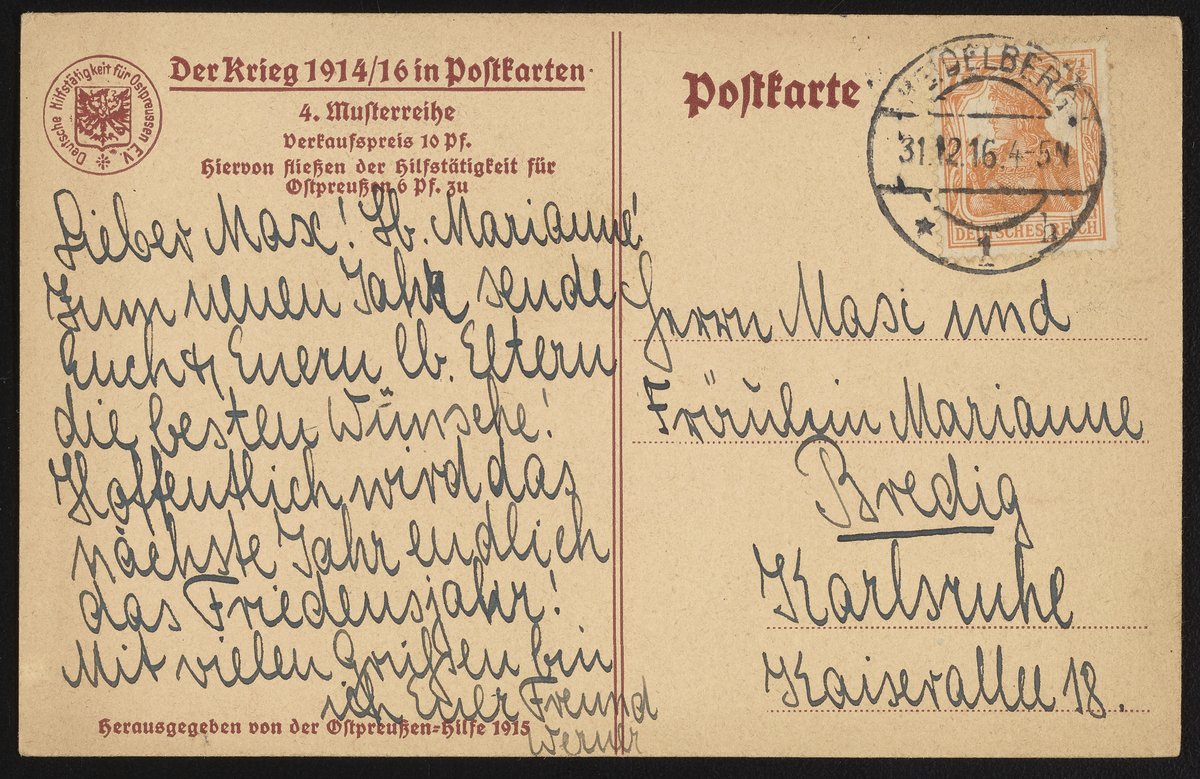 Deutsche Hilfstätigkeit für Ostpreussen E.V.
Der Krieg 1914/16 in Postkarten
4. Musterreihe
Verkaufspreis 10 Pf.
Hiervon fließen der Hilfstätigkeit für
Ostpreußen 6 Pf. zu
Lieber Max! Lb. Marianne!
Zum neuen Jahr sende
Euch & Euern lb. Eltern
die besten Wünsche!
Hoffentlich wird das
nächste Jahr endlich
das Friedensjahr!
Mit vielen Grüßen bin
ich Euer Freund
Werner
Herausgegeben von der Ostpreußen-Hilfe 1915
Postkarte
HEIDELBERG.
31.12.16. 4-5N
* 1 h
7½
DEUTSCHES REICH
Herrn Max und
Fräulein Marianne
Bredig
Karlsruhe
Kaiserallee 18.